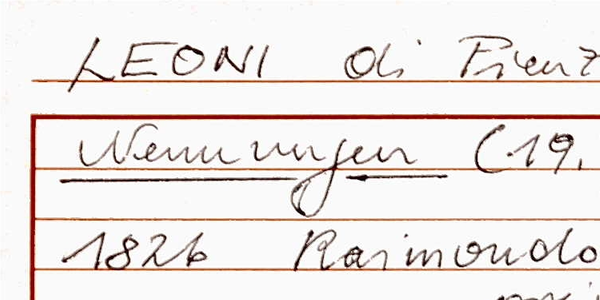 LEONI di Pienz
Nennungen (19.
1826 Raimondo